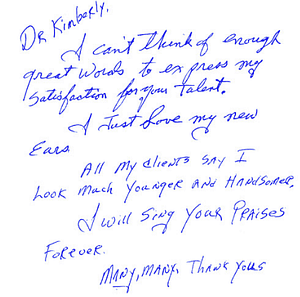 Dr Kimberly,
I can't think of enough
great words to express my
satisfaction for your talent.
I Just love my new
Ears
All my clients say I
look much younger and handsomer,
I will sing your Praises
Forever.
Many, Many, Thank yous